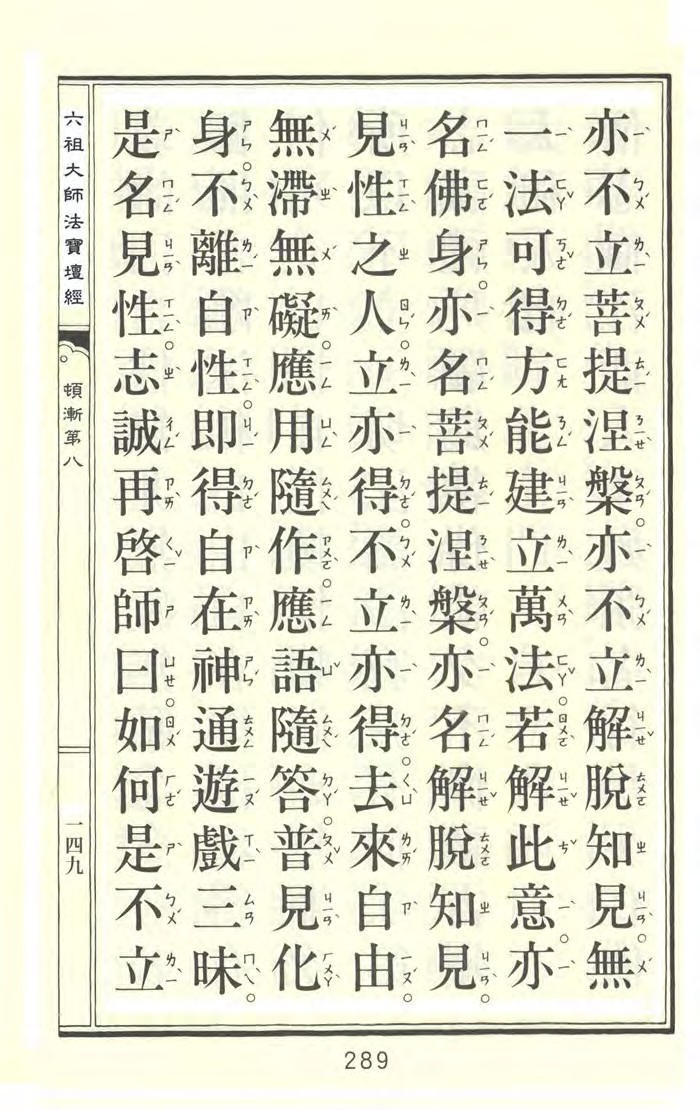 亦不立菩提涅槃。亦不立解脫知見。無
一法可得方能建立萬法。若解此意。亦
名佛身。亦名菩提涅槃。亦名解脫知見。
見性之人。立亦得。不立亦得。去來自由。
無滯無礙。應用隨作。應語隨答。普見化
身。不離自性。即得自在神通遊戲三昧。
是名見性。志誠再啓師曰。如何是不立
六祖大師法寶壇經
頓漸第八
一四九
289